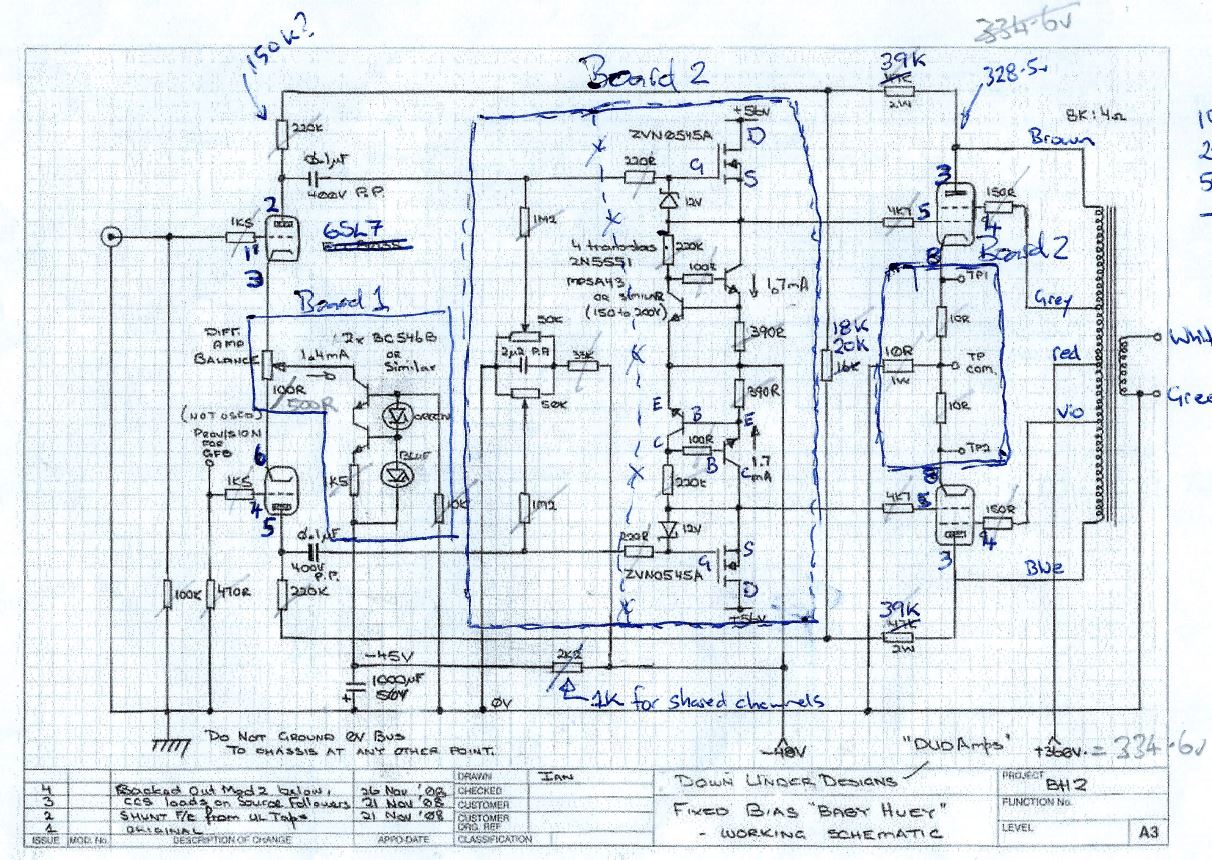 334.6v
150K?
Board 2
39K
2W
328.5v
8K:4Ω
Brown
+56v
D
ZVN0545A
220K
0.1µF
400V P.P.
220R
G
S
12V
2
1K5
1
6SL7
3
1M2
4 transistors
2N5551
MPSA43
OR SIMILAR
(150 to 200V)
220K
100R
1.7mA
390R
4K7
3
5
150R
4
8
Board 2
TP1
Grey
10R
Board 1
DIFF.
AMP
BALANCE
1.4mA
2x BC546B
OR
Similar
100R
500R
50K
2µ2 P.P.
33K
50K
18K
20K
10R
1W
TP
com.
red
10R
Vio
TP2
White
(NOT USED)
PROVISION
FOR
GFB
GREEN
BLUE
E
B
C
390R
E
100R
B
C
1.7
mA
220K
6
1K5
4
5
K5
10K
1M2
4K7
8
5
150R
4
3
Blue
0.1µF
400V
P.P.
12V
220R
ZVN0545A
G
S
D
+56v
100K
470R
220K
39K
2W
-45V
1000µF
50V
2K2
1K for shared channels
0V
DO NOT GROUND 0V BUS
TO CHASSIS AT ANY OTHER POINT.
-48V
"DUDAmps"
+360V. = 334.6v
4 Backed Out Mod 2 below, 26 Nov '08
3 CCS loads on Source Followers 21 Nov '08
2 SHUNT F/B from UL Taps 21 Nov '08
1 ORIGINAL
ISSUE MOD. No. DESCRIPTION OF CHANGE APPD·DATE
DRAWN IAN
CHECKED
CUSTOMER
CUSTOMER
ORG. REF
CLASSIFICATION
DOWN UNDER DESIGNS
FIXED BIAS "BABY HUEY"
- WORKING SCHEMATIC
PROJECT
BH2
FUNCTION No.
LEVEL
A3